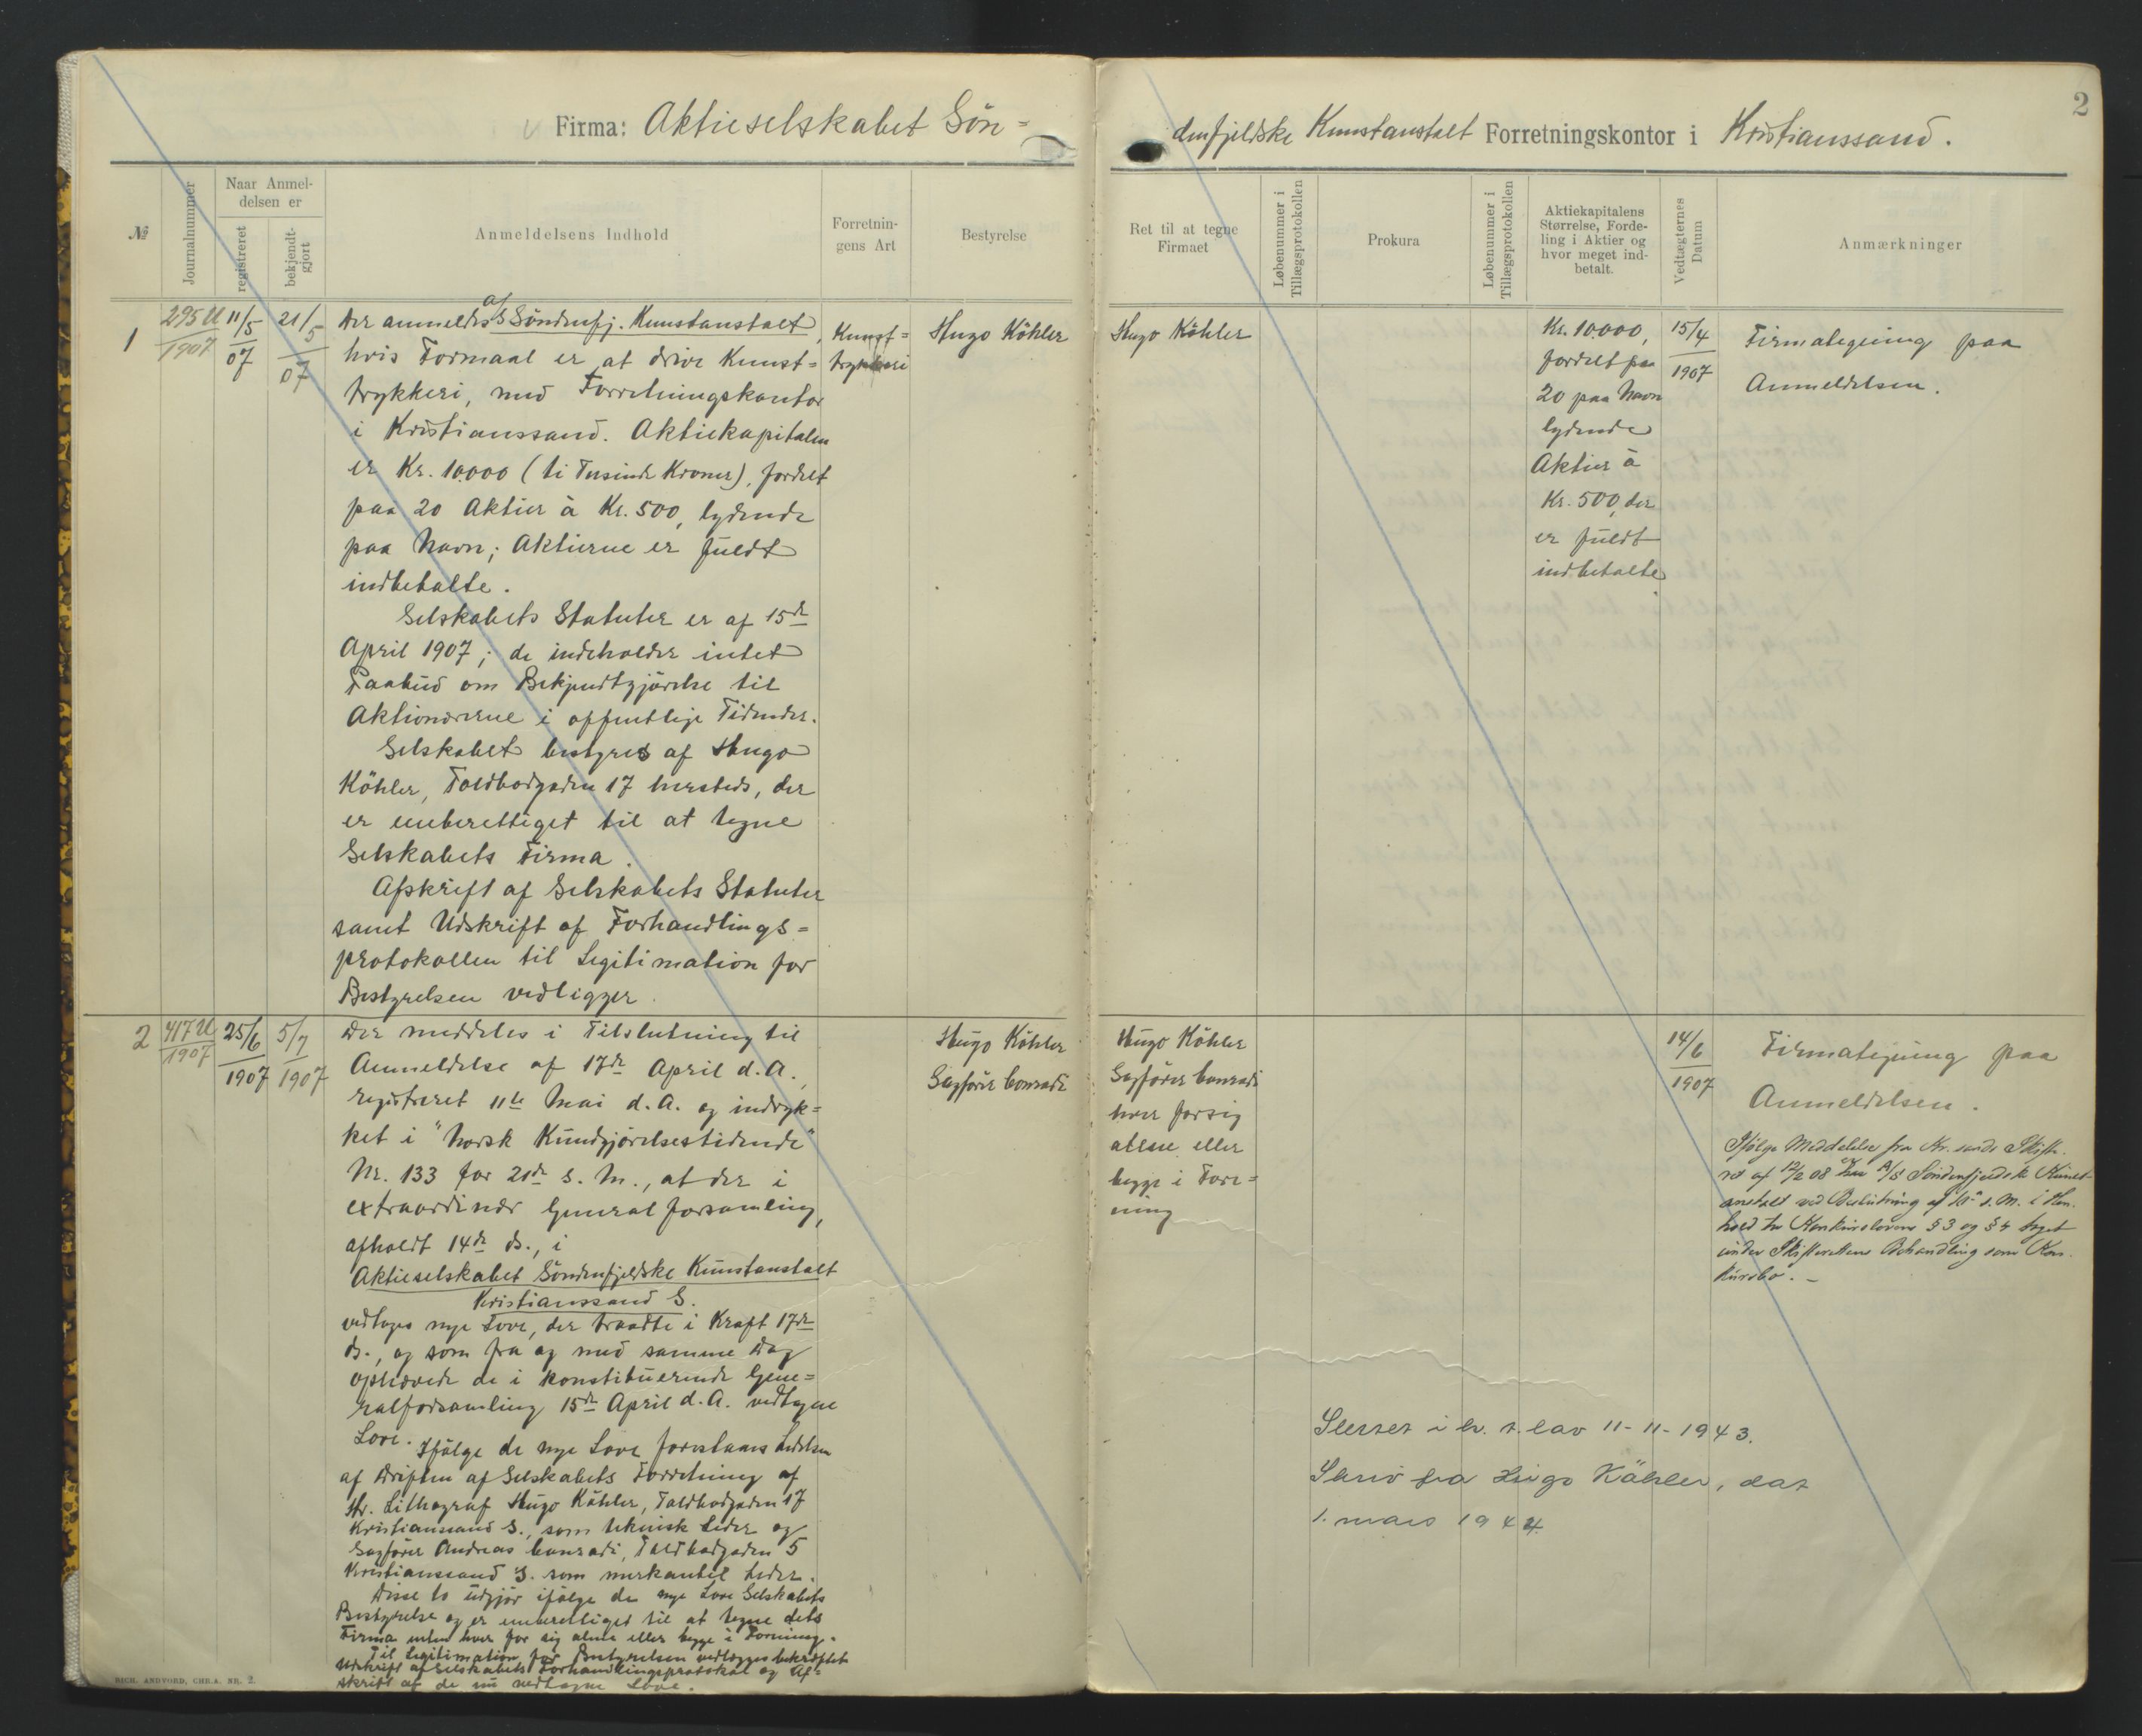 2
Firma: Aktieselskabet Sön=
denfjeldske Kunstanstalt Forretningskontor i Kristianssand.
№
Journalnummer
Naar Anmel-
delsen er
registreret
bekjendt-
gjort
Anmeldelsens Indhold
Forretnin-
gens Art
Bestyrelse
Ret til at tegne
Firmaet
Løbenummer i
Tillægsprotokollen
Prokura
Løbenummer i
Tillægsprotokollen
Aktiekapitalens
Størrelse, Forde-
ling i Aktier og
hvor meget ind-
betalt.
Vedtægternes
Datum
Anmærkninger
1
295 U
1907
11/5
07
21/5
07
Der anmeldes A/S Söndenfj. Kunstanstalt,
hvis Formaal er at drive Kunst=
trykkeri, med Forretningskontor
i Kristianssand. Aktiekapitalen
er Kr. 10.000 (ti Tusinde Kroner), fordelt
paa 20 Aktier à Kr. 500, lydende
paa Navn; Aktierne er fuldt
indbetalte.
Selskabets Statuter er af 15de
April 1907; de indeholder intet
Paabud om Bekjendtgjörelse til
Aktionærerne i offentlige Tidender.
Selskabet bestyres af Hugo
Köhler, Toldbodgaden 17 hersteds, der
er eneberettiget til at tegne
Selskabets Firma.
Afskrift af Selskabets Statuter
samt Udskrift af Forhandlings=
protokollen til Legitimation for
Bestyrelsen vedligger.
Kunst=
trykkeri
Hugo Köhler
Hugo Köhler
Kr. 10.000,
fordelt paa
20 paa Navn
lydende
Aktier à
Kr. 500, der
er fuldt
indbetalte
15/4
1907
Firmategning paa
Anmeldelsen.
2
417 U
1907
25/6
1907
5/7
1907
Der meddeles i Tilslutning til
Anmeldelse af 17de April d. A.,
registreret 11te Mai d. A. og indryk=
ket i "Norsk Kundgjörelsestidende"
Nr. 133 for 21de s. M., at der i
extraordinær Generalforsamling,
afholdt 14de ds., i
Aktieselskabet Söndenfjeldske Kunstanstalt
Kristianssand S.
vedtoges nye Love, der traadte i Kraft 17de
ds., og som fra og med samme Dag
ophævede de i konstituerende Gene=
ralforsamling 15de April d. A. vedtagne
Love. Ifölge de nye Love forestaaes Ledelsen
af Driften af Selskabets Forretning af
Hr. Lithograf Hugo Köhler, Toldbodgaden 17
Kristianssand S., som teknisk Leder og
Sagförer Andreas Conradi, Toldbodgaden 5
Kristianssand S. som merkantil Leder.
Disse to udgjör ifölge de nye Love Selskabets
Bestyrelse og er eneberettiget til at tegne dets
Firma enten hver for sig alene eller begge i Forening.
Til Legitimation for Bestyrelsen vedlægges bekræftet
Udskrift af Selskabets Forhandlingsprotokol og Af=
skrift af de nu vedtagne Love.
Hugo Köhler
Sagförer Conradi
Hugo Köhler
Sagförer Conradi
hver forsig
alene eller
begge i Fore=
ning
14/6
1907
Firmategning paa
Anmeldelsen.
Ifölge Meddelelse fra Kr.sands Skifte-
ret af 12/2 08 er A/S Söndenfjeldske Kunst-
anstalt ved Beslutning af s. M. i Hen-
hold til Konkurslovens § 3 og § 4 taget
under Skifterettens Behandling som Kon-
kursbo. –
Slettet i h. t. lov 11-11-1943.
Skriv fra Hugo Köhler, dat
1. mars 1944.
RICH. ANDVORD, CHR.A. NR. 2.